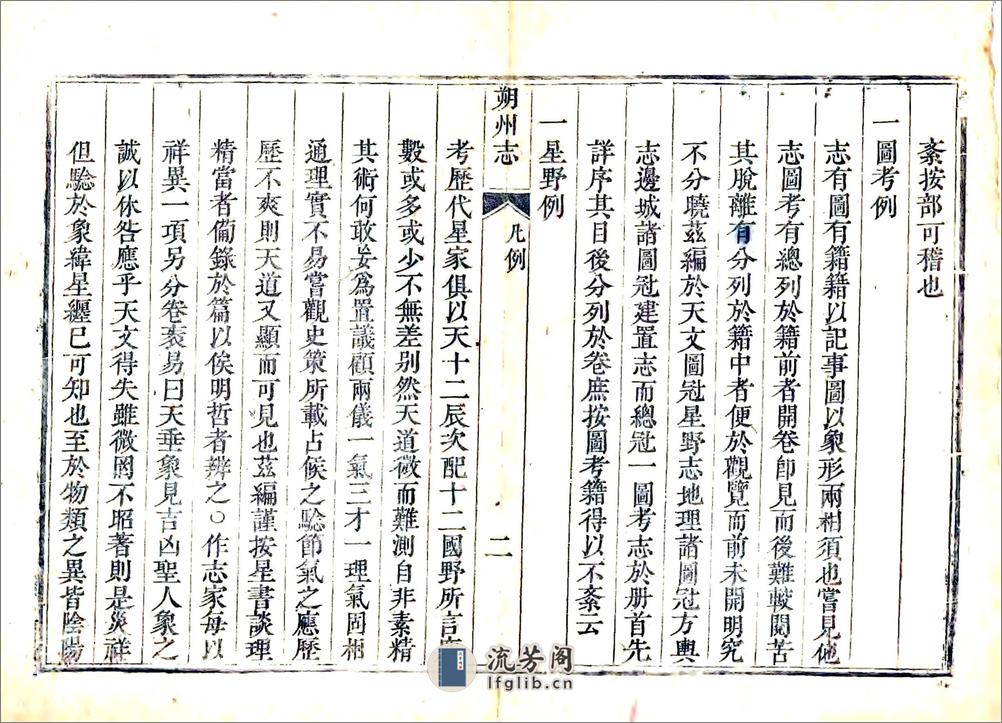 紊按部可稽也
一圖考例
志有圖有籍籍以記事圖以象形兩相須也嘗見他
志圖考有總列於籍前者開卷卽見而後難較閱苦
其脫離有分列於籍中者便於觀覽而前未開明究
不分曉茲編於天文圖冠星野志地理諸圖冠方輿
志邊城諸圖冠建置志而總冠一圖考志於册首先
詳序其目後分列於卷庶按圖考籍得以不紊云
一星野例
朔州志
凡例
二
考歷代星家俱以天十二辰次配十二國野所言
數或多或少不無差别然天道微而難測自非素精
其術何敢妄爲置議顧兩儀一氣三才一理氣固相
通理實不易嘗觀史策所載占候之驗節氣之應歷
歷不爽則天道又顯而可見也茲編謹按星書談理
精當者備錄於篇以俟明哲者辨之○作志家每以
祥異一項另分卷袠易曰天垂象見吉凶聖人象之
誠以休咎應乎天文得失雖微罔不昭著則是災祥
但驗於象緯星纏已可知也至於物類之異皆陰陽
流芳阁
lfglib.cn